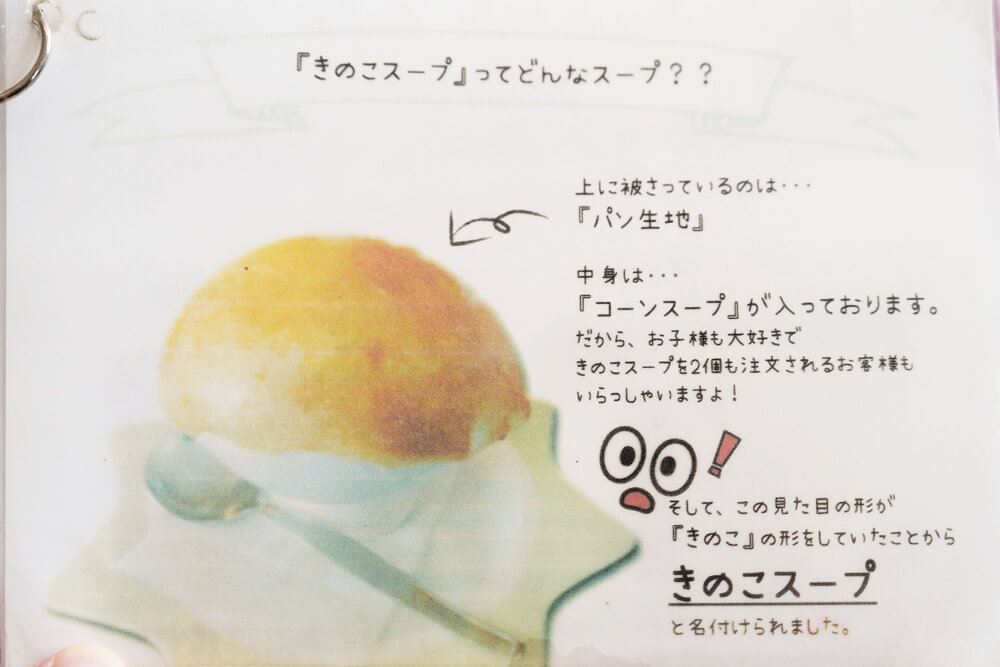 『きのこスープ』ってどんなスープ？？
上に被さっているのは･･･
『パン生地』
中身は･･･
『コーンスープ』が入っております。
だから、お子様も大好きで
きのこスープを2個も注文されるお客様も
いらっしゃいますよ！
そして、この見た目の形が
『きのこ』の形をしていたことから
きのこスープ
と名付けられました。